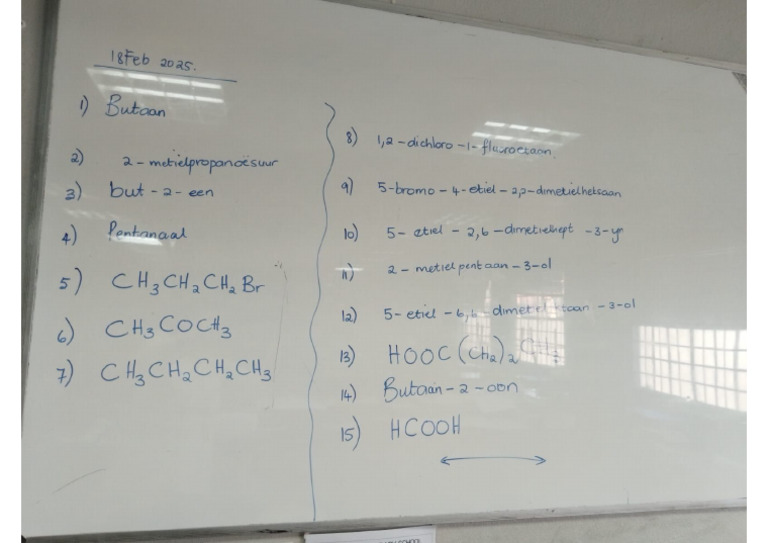 18 Feb 2025.
1) Butaan
2) 2-metielpropanoësuur
3) but-2-een
4) Pentanaal
5) CH₃CH₂CH₂Br
6) CH₃COCH₃
7) CH₃CH₂CH₂CH₃
8) 1,2-dichloro-1-fluoroetaan
9) 5-bromo-4-etiel-2,2-dimetielheksaan
10) 5-etiel-2,6-dimetielhept-3-yn
11) 2-metielpentaan-3-ol
12) 5-etiel-6,6-
13) HOOC(CH₂)₂CH₃
14) Butaan-2-oon
15) HCOOH